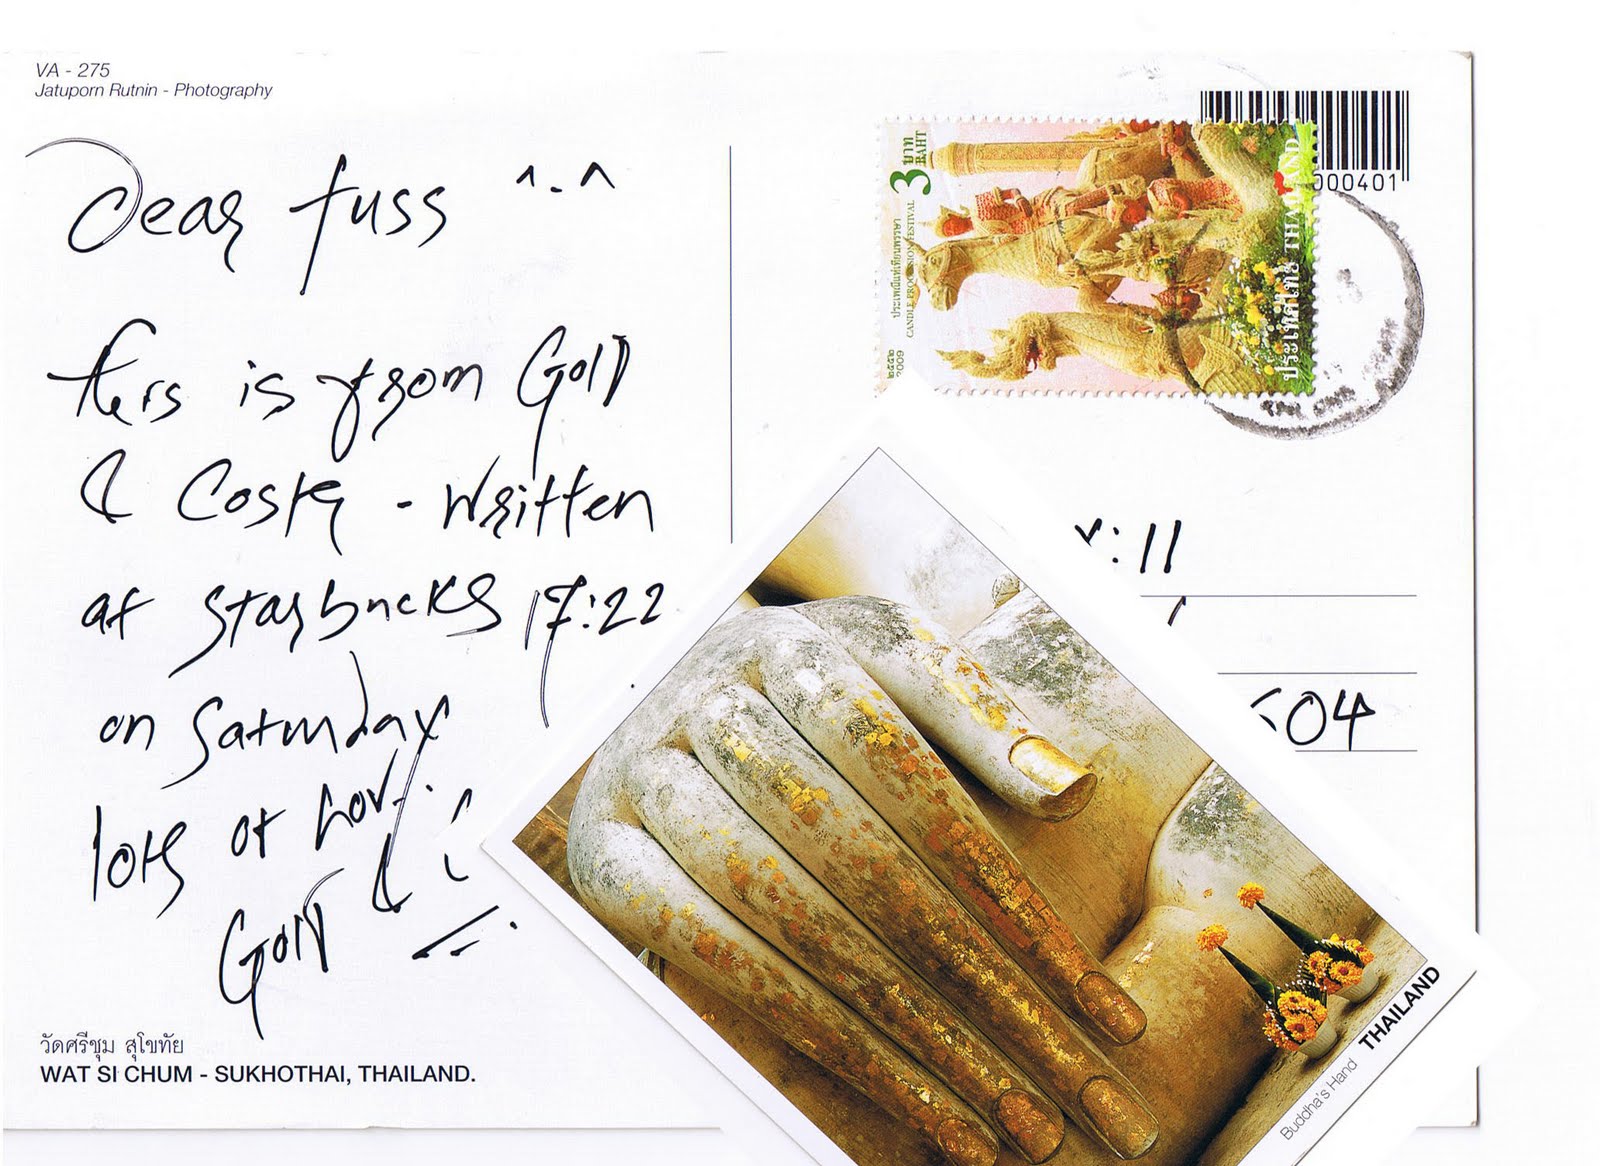 VA - 275
Jatuporn Rutnin - Photography
Dear fuss ^-^
this is from Gold
& Costa - written
at starbucks 17:22
on saturday
lots of
Gold &
วัดศรีชุม สุโขทัย
WAT SI CHUM - SUKHOTHAI, THAILAND.
000401
3 บาท
BAHT
ประเพณีแห่เทียนพรรษา
CANDLE PROCESSION FESTIVAL
๒๕๕๒
2009
ประเทศไทย THAILAND
:11
504
Buddha's Hand THAILAND